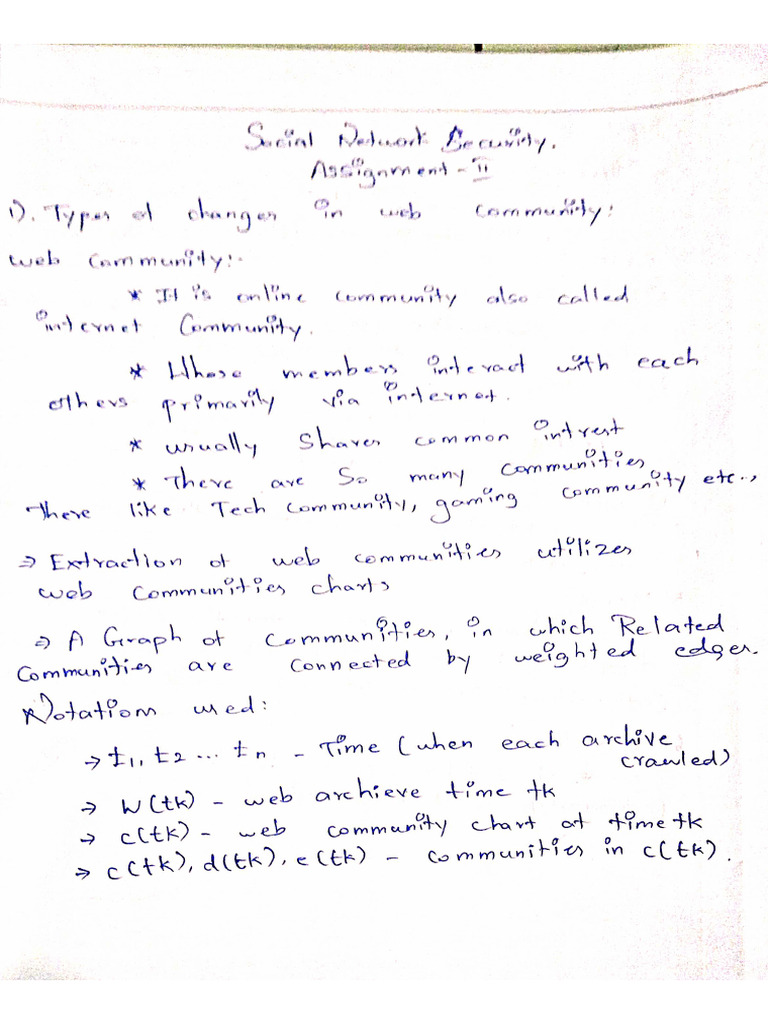 Social Network Security.
Assignment - II
1). Types of changes in web community:
web community:-
* It is online community also called
internet Community.
* Whose members interact with each
others primarily via internet.
* usually Shares common intrest
* There are So many communities
There like Tech community, gaming community etc.,
⇒ Extraction of web communities utilizes
web communities charts
⇒ A Graph of communities, in which Related
Communities are connected by weighted edges.
Notations used:
→ t1, t2 ... tn - Time (when each archive
crawled)
→ W(tk) - web archieve time tk
→ c(tk) - web community chart at time tk
→ c(tk), d(tk), e(tk) - communities in c(tk).